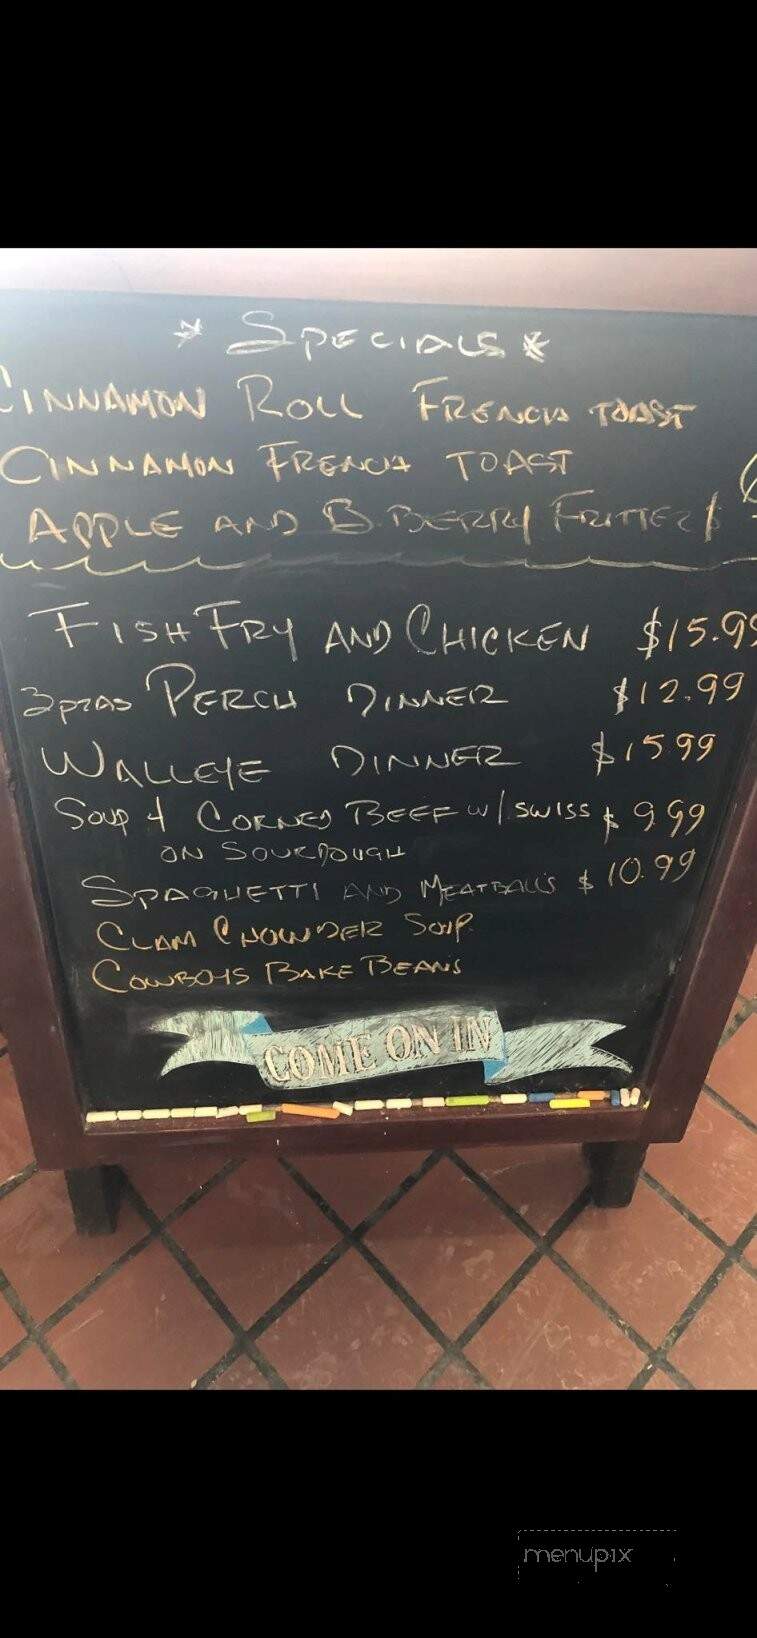 * Specials *
Cinnamon Roll French Toast
Cinnamon French Toast
Apple and B.Berry Fritter $
Fish Fry and Chicken $15.99
Perch Dinner $12.99
Walleye Dinner $15.99
Soup & Corned Beef w/ Swiss $9.99
on Sourdough
Spaghetti and Meatballs $10.99
Clam Chowder Soup
Cowboys Bake Beans
COME ON IN
menupix